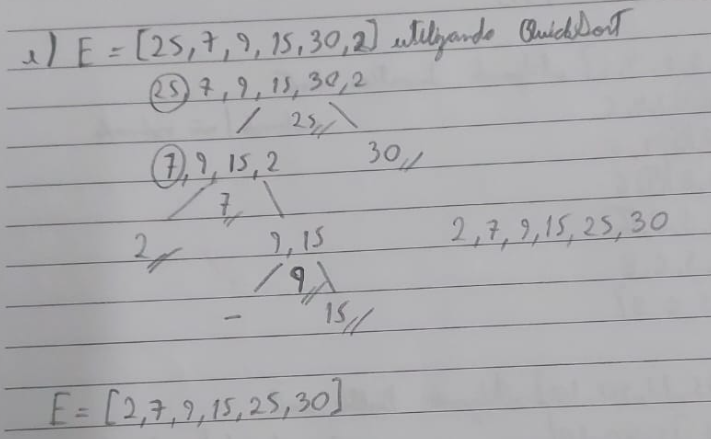 e) E = [25, 7, 9, 15, 30, 2] utilizando QuickSort
25, 7, 9, 15, 30, 2
25
7, 9, 15, 2 30
7
2 9, 15 2, 7, 9, 15, 25, 30
9
- 15
E = [2, 7, 9, 15, 25, 30]